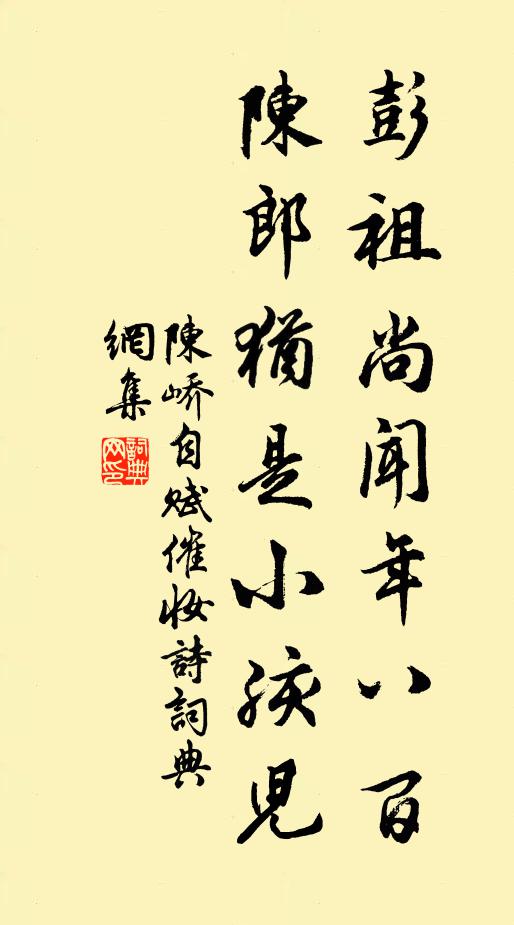 彭祖尚聞年八百
陳郎猶是小孩兒
陳嶠自賦催妝詩詞典
網集
詞典網印